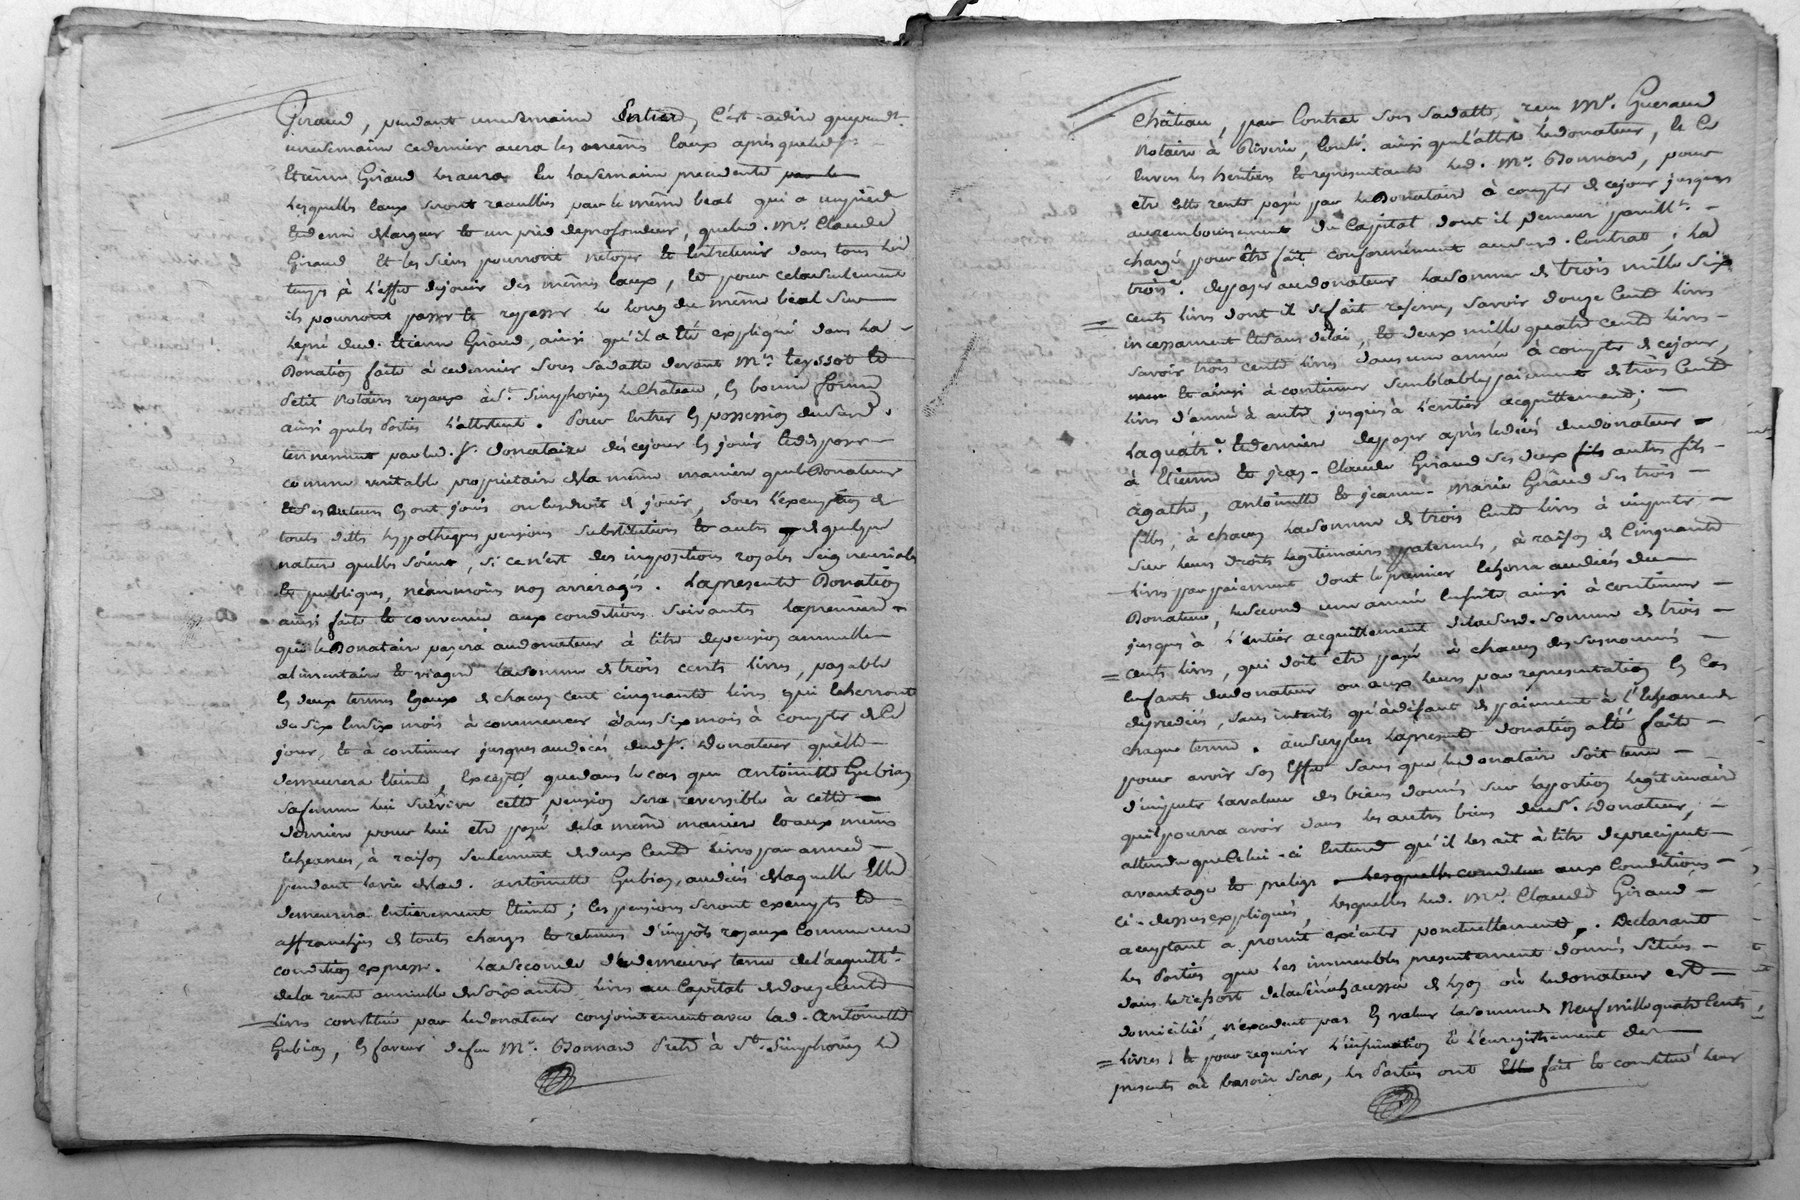 Giraud, pendant une semaine Entiere, C'est-adire que pend.t
une semaine ce dernier aura les mêmes Eaux après que led. Sr.
Etienne Giraud les aura Eu la semaine precedente
Lesquelles Eaux seront recueillies par le même béal qui a un pied
Et demi de largeur Et un pied de profondeur, que led. Mr. Claude
Giraud Et les siens pourront netoyer Et Entretenir dans tous les
temps à L'effet de jouir des mêmes Eaux, Et pour cela seulement
ils pourront passer Et repasser Le long du même béal sur
Le pré dud. Etienne Giraud, ainsi qu'il a Eté expliqué dans La
Donation faite à ce dernier sous sa datte devant Mes. teyssot Et
Petit Notaires royaux à St. Simphorien le Château, En bonne forme
ainsi que les Parties L'attestent. Pour Entrer En possession dud.
tennement par led. Sr. donataire dès ce jour En jouir Et disposer
comme veritable propriétaire de la même maniere que le Donateur
Et ses Auteurs En ont joui ou Eu droit de jouir, sous L'exemption de
touts dettes hypotheques pensions substitutions Et autres de quelque
nature qu'elles soient, si ce n'est des impositions royales seigneuriales
Et publiques, néanmoins non arréragés. La presente Donation
ainsi faite Et convenue aux conditions suivantes La premiere
que le Donataire payera au donateur à titre de pension annuelle
alimentaire Et viagere la somme de trois cents Livres, payable
En deux termes Egaux de chacun cent cinquante Livres qui Echerront
de six En six mois à commencer dans six mois à compter de Ce
jour, Et à continuer jusques au décès dud. Sr. Donateur qu'elle
demeurera Eteinte, Excepté que dans le cas que Antoinette Gubian
sa femme lui survive cette pension sera reversible à cette
derniere pour lui etre payé de la même maniere Et aux mêmes
Echeances, à raison seulement de deux Cents Livres par année
pendant la vie de lad. Antoinette Gubian, au décès de laquelle Elle
demeurera Entierement Eteinte; Les pensions seront exempts Et
affranchies de touts charges Et retenues d'impôts royaux Comme une
condition expresse. La seconde d'demeurer tenu de l'acquitt.t
de la rente annuelle de soixante Livres au Capital de douze Cents
Livres constitué par le donateur conjointement avec lad. Antoinette
Gubian, En faveur de feu Mr. Bonnard Pretre à St. Simphorien Le
Château, par Contrat sous sa datte, reçu Me. Gueraud
Notaire à Riverie, Contr. ainsi que l'atteste le donateur, Et Ce
Envers les heritiers Et representants dud. Mr. Bonnard, pour
etre Cette rente payé par le Donataire à compter de ce jour jusques
au remboursement du Capital dont il Demeure pareill.t
chargé pour être fait conformément aud. Contrat; La
trois.e de payer au donateur La somme de trois mille six
cents Livres dont il se fait reserve, savoir douze Cents Livres
incessament Et sans délai, Et deux mille quatre cents Livres
savoir trois cents Livres dans une année à compter de ce jour,
Et ainsi à continuer semblable paiement de trois Cents
Livres d'année à autre jusques à L'entier acquittement;
La quatr.e Et derniere de payer après le décès du donateur
à Etienne Et jean-Claude Giraud ses deux fils autres fils
agathe, Antoinette Et jeanne-Marie Giraud ses trois
filles, à chacun La somme de trois Cents Livres à imputer
sur leurs droits Legitimaires paternels, à raison de Cinquante
Livres par paiement dont le premier Echerra au décès du
Donateur, Le second une année Ensuite ainsi à continuer
jusques à L'entier acquittement de la sud. somme de trois
cents Livres, qui doit etre payé à chacun des susnommés
Enfants du donateur ou aux Leurs par representation En Cas
de predécès, sans interets qu'à défaut de paiement à L'Echeance de
chaque terme. au surplus La presente donation a Eté faite
pour avoir son Effet sans que le donataire soit tenu
d'imputer La valeur des biens donnés sur La portion Legitimaire
qu'il pourra avoir dans les autres biens dud. Sr. Donateur,
attendu que Celui-ci Entend qu'il les ait à titre de preciput
avantage Et prelegs aux Conditions
ci-dessus expliqués, Lesquelles led. Mr. Claude Giraud
acceptant a promis exécuter ponctuellement. Declarant
Les Parties que Les immeubles presentement donnés situés
dans Le ressort de la sénéchaussée de Lyon où le donateur est
domicilié, n'excedent pas En valeur La somme de Neuf mille quatre Cents
Livres: Et pour requerir L'insinuation Et L'enregistrement des
presents où besoin sera, Les Parties ont fait Et constitué Leur